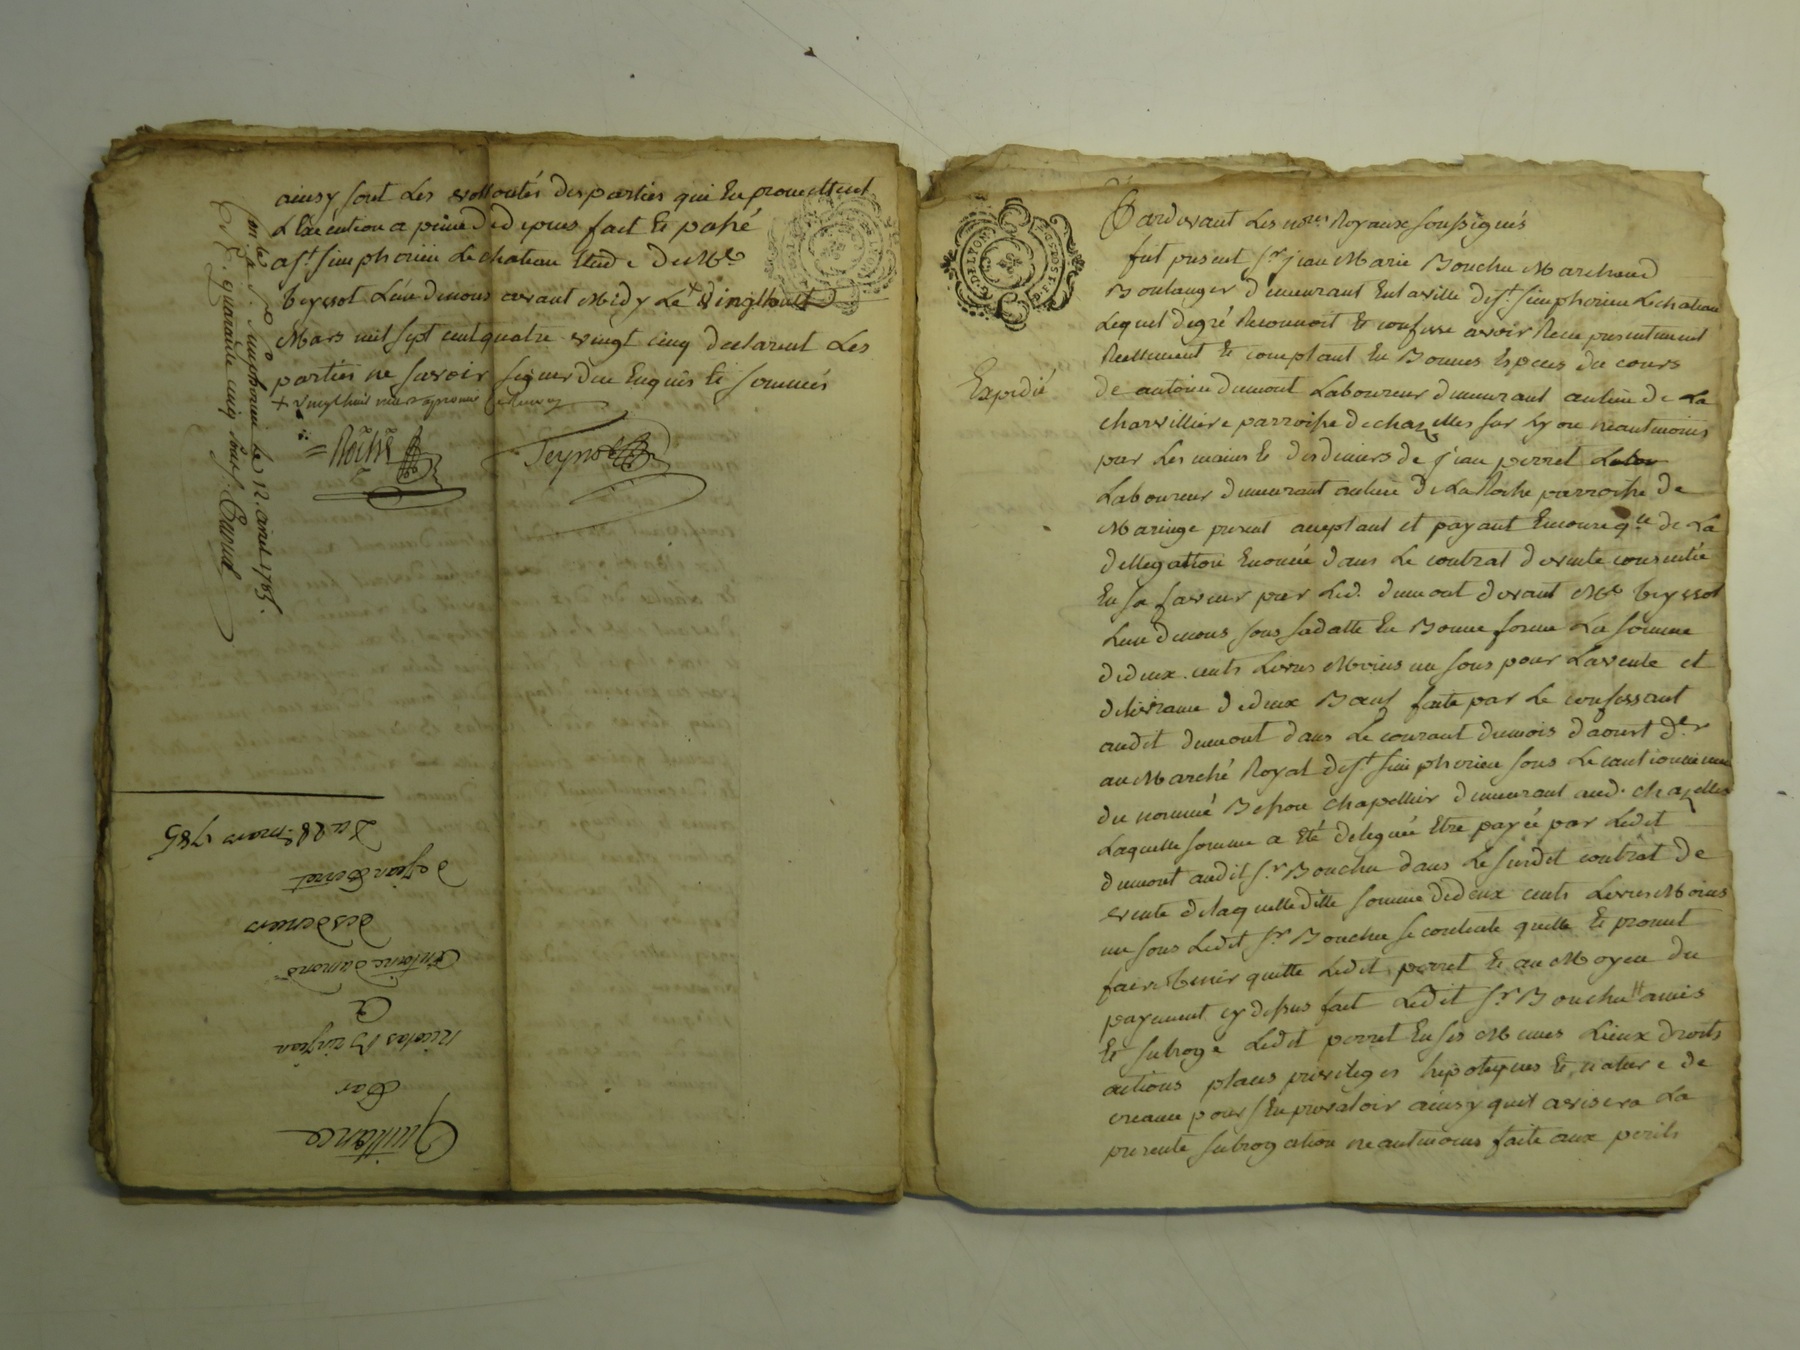 ainsy sont Les vollontés des parties qui En promettent
L'Exécution a peine de depens fait Et passé
a St. simphorien Le chateau Etude de Me
teyssot L'un de nous avant Midy Le
Mars mil sept cent quatre vingt cinq declarent Les
parties ne savoir signer de ce Enquis Et sommés
+ vingt huit
Teyssot
a St. simphorien le 12 avril 1785.
quarante cinq sous.
Quittance
Par
nicolas
A
Antoine Dumond
des deniers
de Jean Perret
Du 28 mars 1785
DE LYON
Expedié
Pardevant Les nores. Royaux soussignés
fut present sr. jean Marie Bouchu Marchand
Boulanger demeurant En la ville de st. simphorien Le chateau
Lequel de gré Reconnoit Et confesse avoir Recu presentement
Reellement Et comptant En Bonnes Especes du cours
de antoine dumont Laboureur demeurant au lieu de La
charvilliere parroisse de chazelles sur Lyon neantmoins
par Les mains Et des deniers de jean perret Labou
Laboureur demeurant au lieu de La Roche parroisse de
Maringe present acceptant et payant Enconseqce. de La
dellegation Enoncée dans Le contrat de vente consentie
En sa faveur par Led. dumont devant Me teyssot
L'un de nous sous sa datte En Bonne forme La somme
de deux cents Livres Moins un sous pour La vente et
delivrance de deux Bœufs faite par Le confessant
audit dumont dans Le courant du mois d'aoust der
au Marché Royal de st. simphorien sous Le cautionnement
du nommé Besson chapellier demeurant aud. chazelles
Laquelle somme a Eté deleguée Etre payée par Ledit
dumont audit sr. Bouchu dans Le susdit contrat de
vente de laquelle ditte somme de deux cents Livres Moins
un sous Ledit sr. Bouchu se contente quitte Et promet
faire tenir quitte Ledit perret Et au Moyen du
payement cy dessus fait Ledit sr. Bouchu a mis
Et subrogé Ledit perret En ses Memes Lieux droits
actions places privileges hipoteques Et nature de
creance pour s'En prevaloir ainsy qu'il avisera La
presente subrogation neantmoins faite aux perils